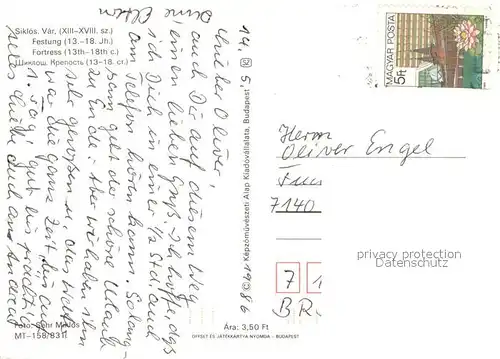 Siklós. Vár. (XIII–XVIII. sz.)
Festung (13.-18. Jh.)
Fortress (13th-18th c.)
Шиклош. Крепость (13-18. ст.)
14. 5. 1986
Lieber Oliver,
auch Dir auf diesem Weg
einen lieben Gruß. Ich hoffe, dass
ich Dich in einer 1/2 Std. auch
am Telefon hören kann.
geht der schöne Urlaub
zu Ende. Aber wir haben ihn
sehr genossen u. das Wetter
war die ganze Zeit
1. Tag, gut bis
deine Eltern
Foto: Sehr Miklós
MT-158/831
© Képzőművészeti Alap Kiadóvállalata, Budapest
Ára: 3,50 Ft
OFFSET ÉS JÁTÉKKÁRTYA NYOMDA – BUDAPEST
MAGYAR POSTA
5Ft
Herrn
Oliver Engel
7140
7 1
BR
privacy protection
DaTenschutz